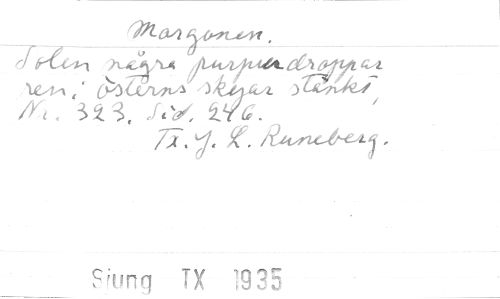 Morgonen.
Solen några purpurdroppar
ren i österns skyar stänkt,
Nr. 323. Sid. 246.
Tx. J. L. Runeberg.
Sjung TX 1935